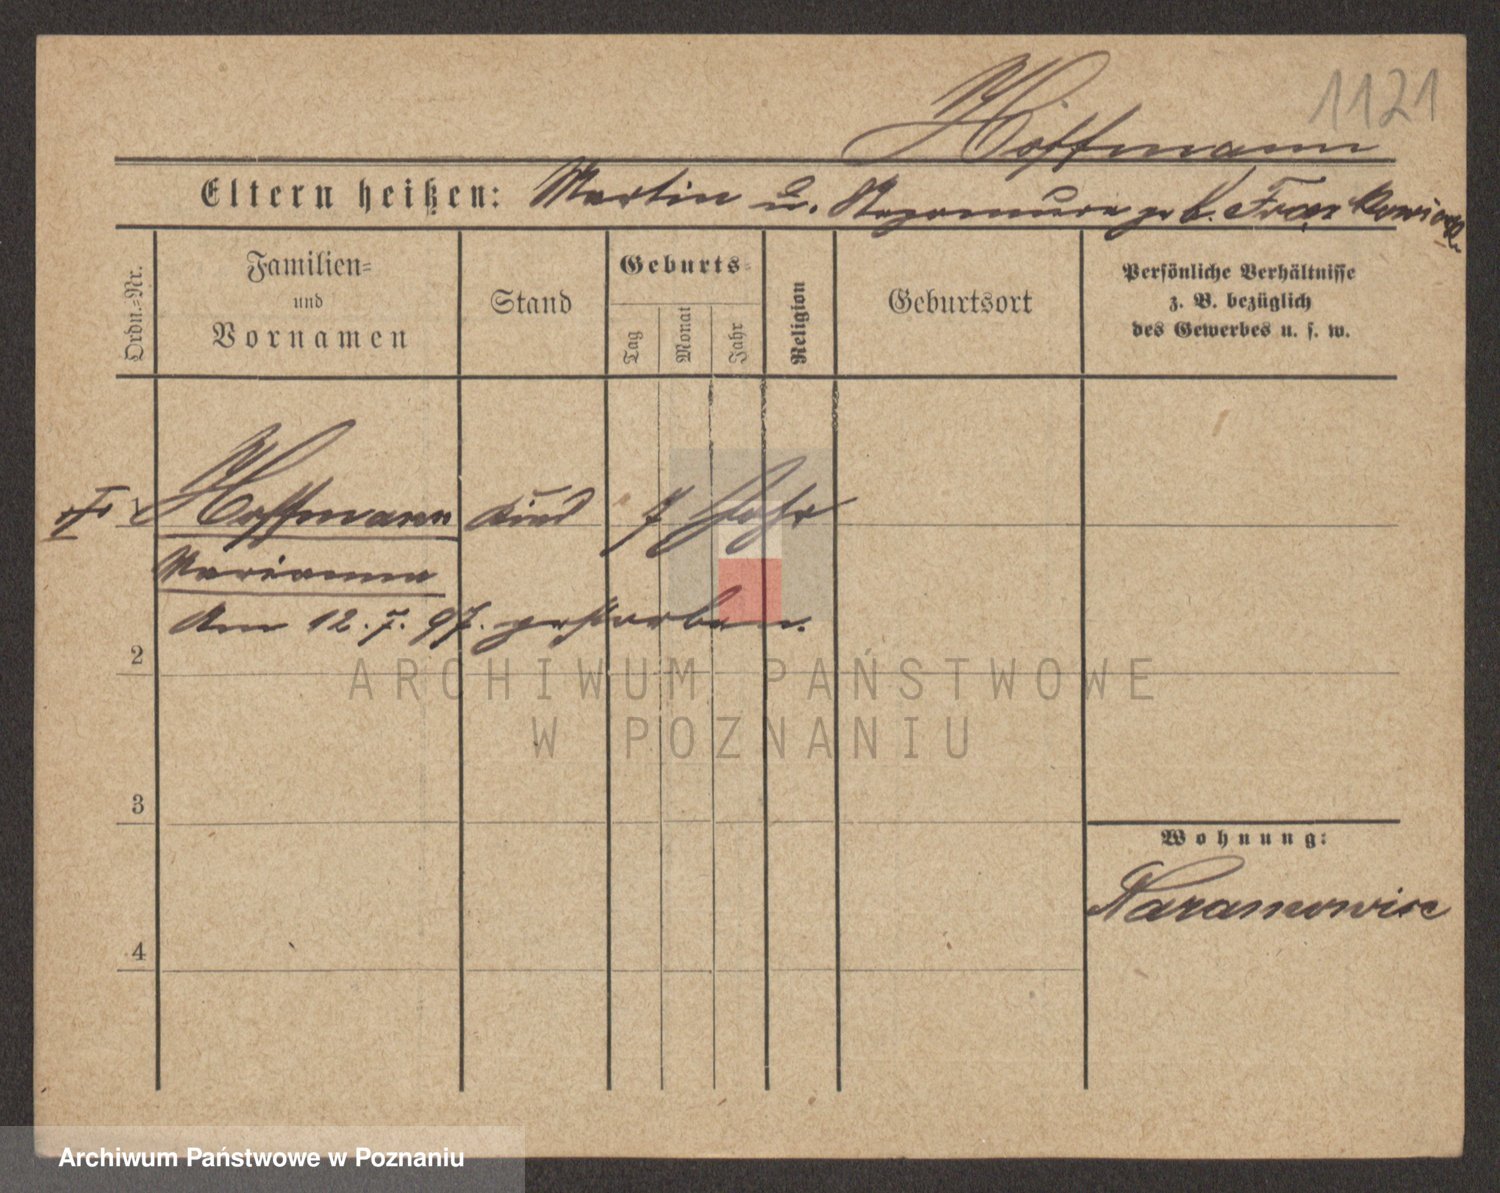 1121
Hoffmann
Eltern heißen: Martin u. geb.
Ordn.=Nr.
Familien=
und
Vornamen
Stand
Geburts=
Tag
Monat
Jahr
Religion
Geburtsort
Persönliche Verhältnisse
z. B. bezüglich
des Gewerbes u. s. w.
1 Hoffmann Kind 7 Jahr
Marianna
Am 12. 7. 97. gestorben.
2
ARCHIWUM PAŃSTWOWE
W POZNANIU
3
Wohnung:
Naramowice
4
Archiwum Państwowe w Poznaniu